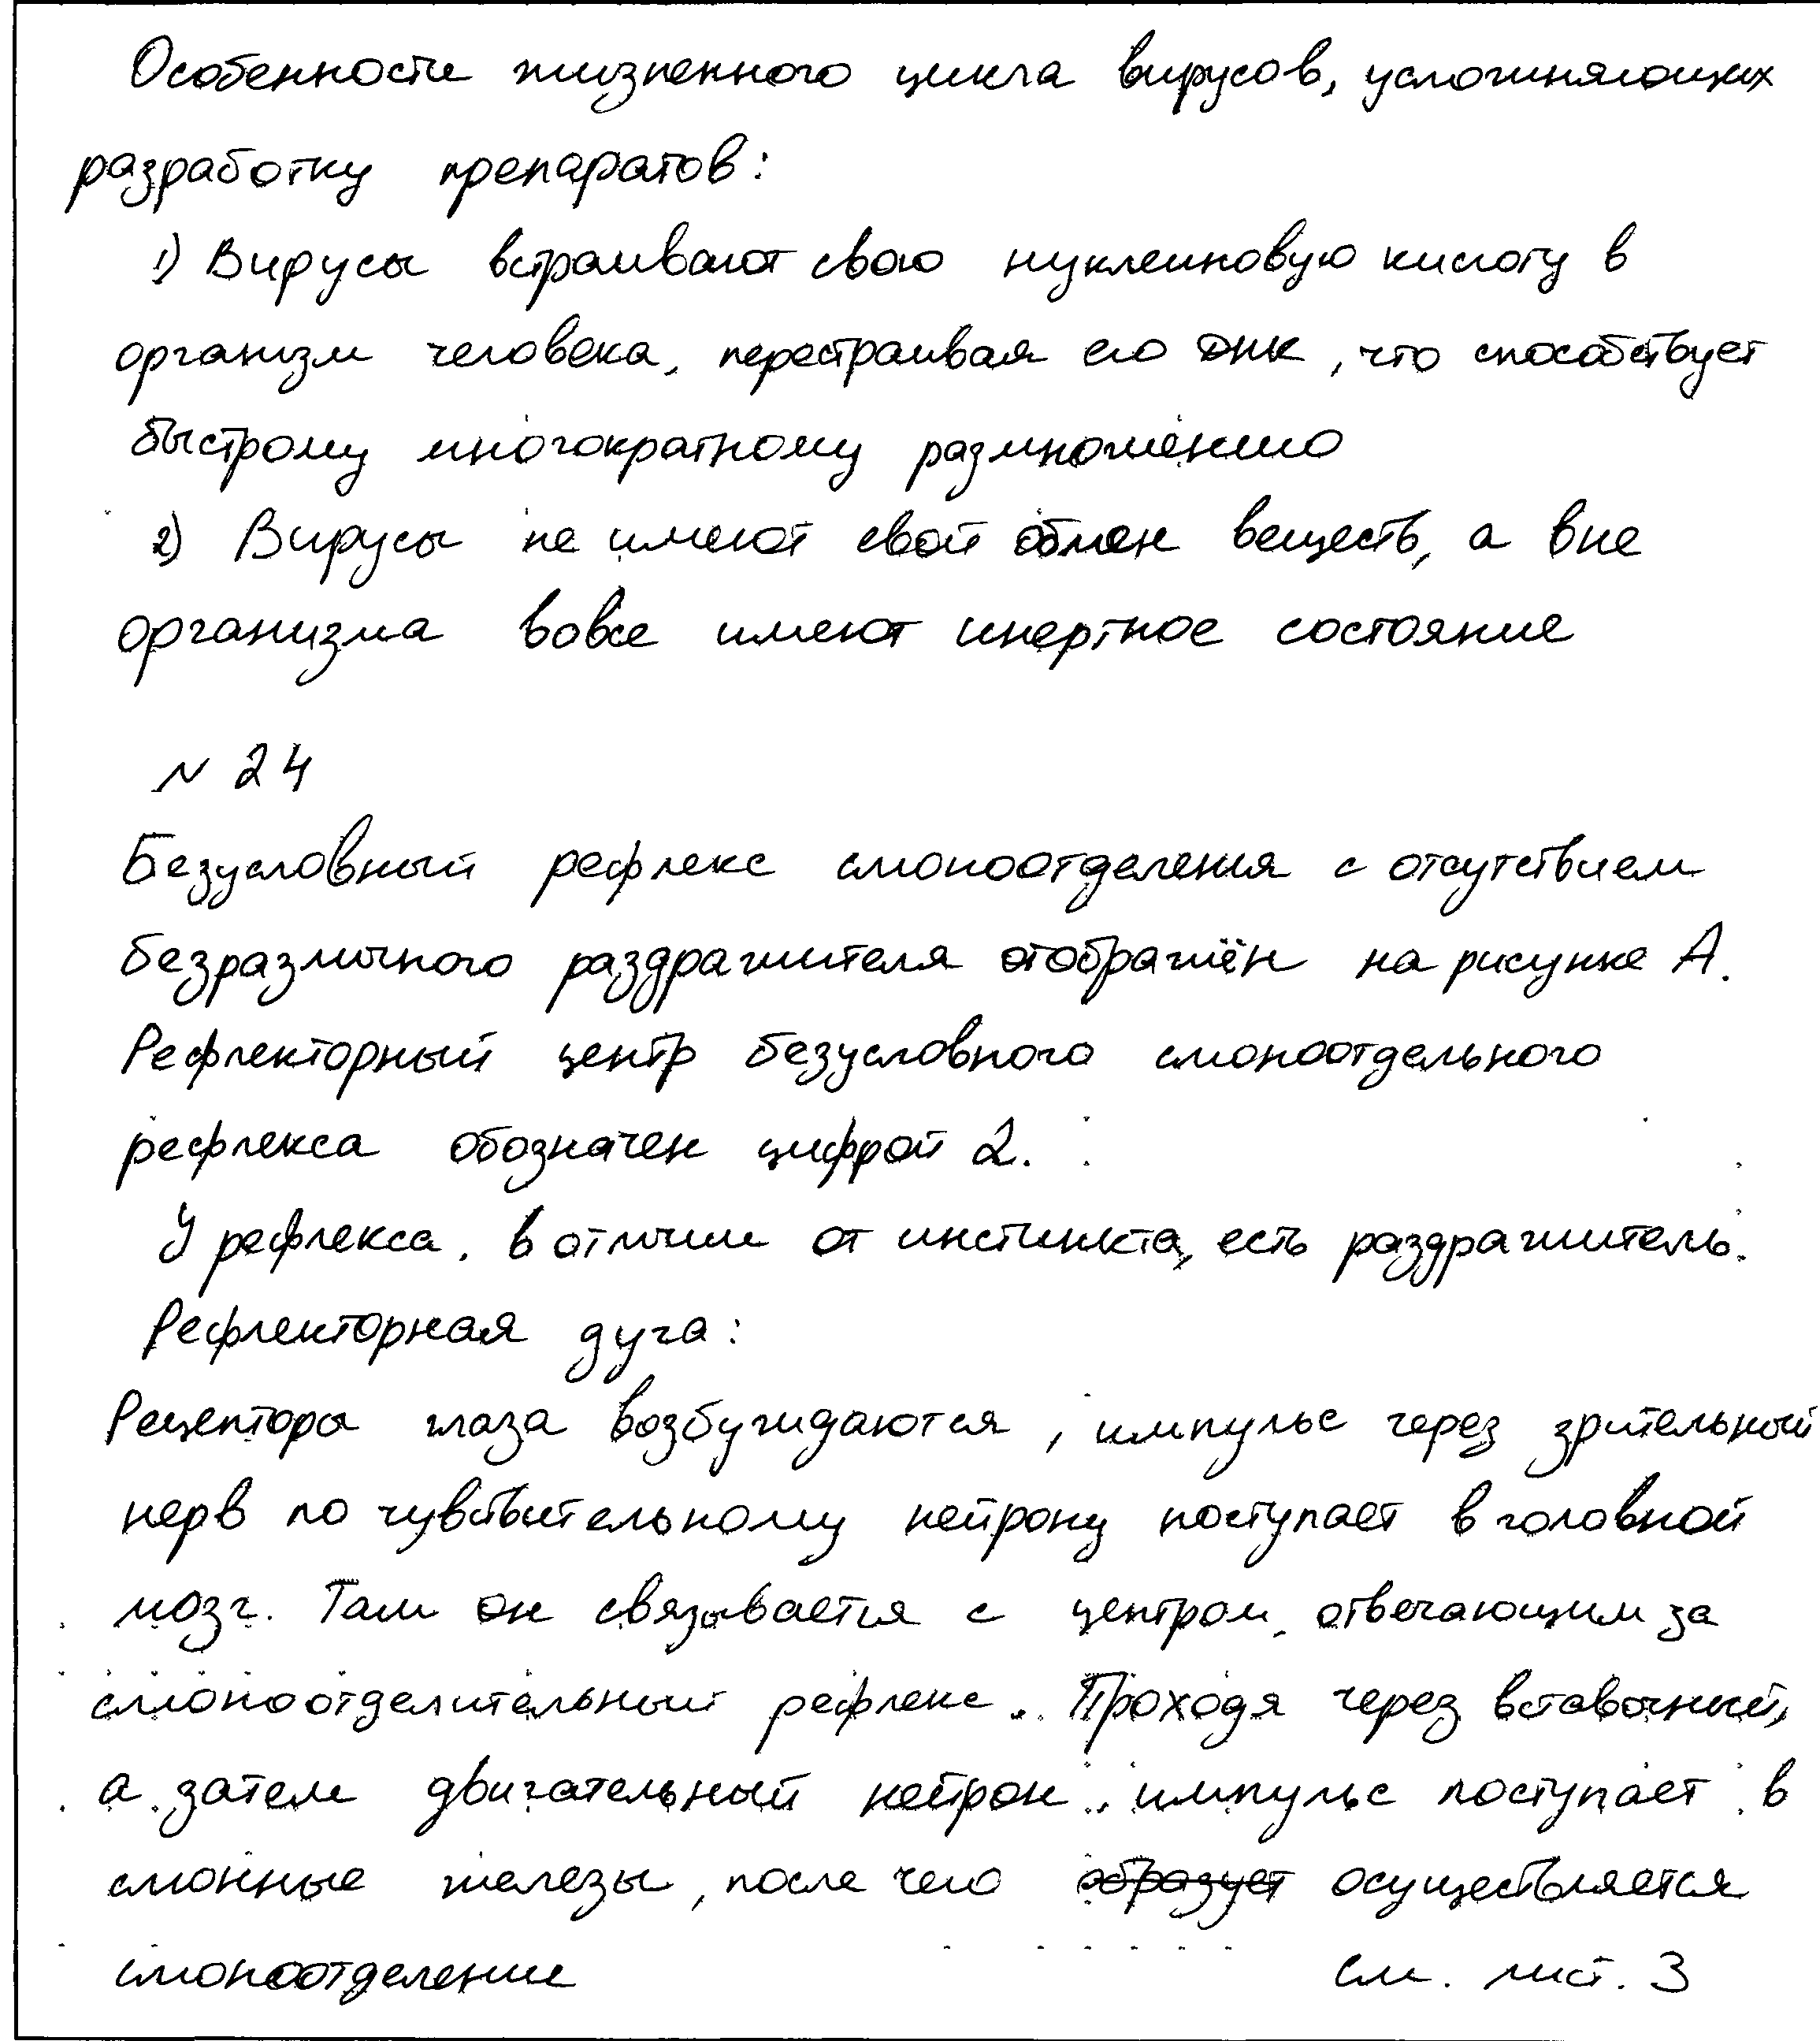 Особенности жизненного цикла вирусов, усложняющих
разработку препаратов:
1) Вирусы встраивают свою нуклеиновую кислоту в
организм человека, перестраивая его ДНК, что способствует
быстрому многократному размножению
2) Вирусы не имеют свой обмен веществ, а вне
организма вовсе имеют инертное состояние
№ 24
Безусловный рефлекс слюноотделения с отсутствием
безразличного раздражителя отображён на рисунке А.
Рефлекторный центр безусловного слюноотдельного
рефлекса обозначен цифрой 2.
У рефлекса, в отличии от инстинкта, есть раздражитель.
Рефлекторная дуга:
Рецепторы глаза возбуждаются, импульс через зрительный
нерв по чувствительному нейрону поступает в головной
мозг. Там он связывается с центром, отвечающим за
слюноотделительный рефлекс. Проходя через вставочный,
а затем двигательный нейрон, импульс поступает в
слюнные железы, после чего образует осуществляется
слюноотделение см. лист. 3